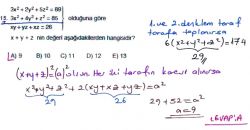 3x² + 2y² + 5z² = 89
15. 3x² + 4y² + z² = 85 olduğuna göre
xy + yz + xz = 26
x + y + z nin değeri aşağıdakilerden hangisidir?
A) 9 B) 10 C) 11 D) 12 E) 13
1. ve 2. denklem taraf
tarafa toplanırsa
6(x²+y²+z²)=174
29
(x+y+z)²=(a)² olsun. Her iki tarafın karesi alınırsa
x²+y²+z²+2(xy+xz+yz)=a²
29 26
29+52=a²
a=9
CEVAP:A